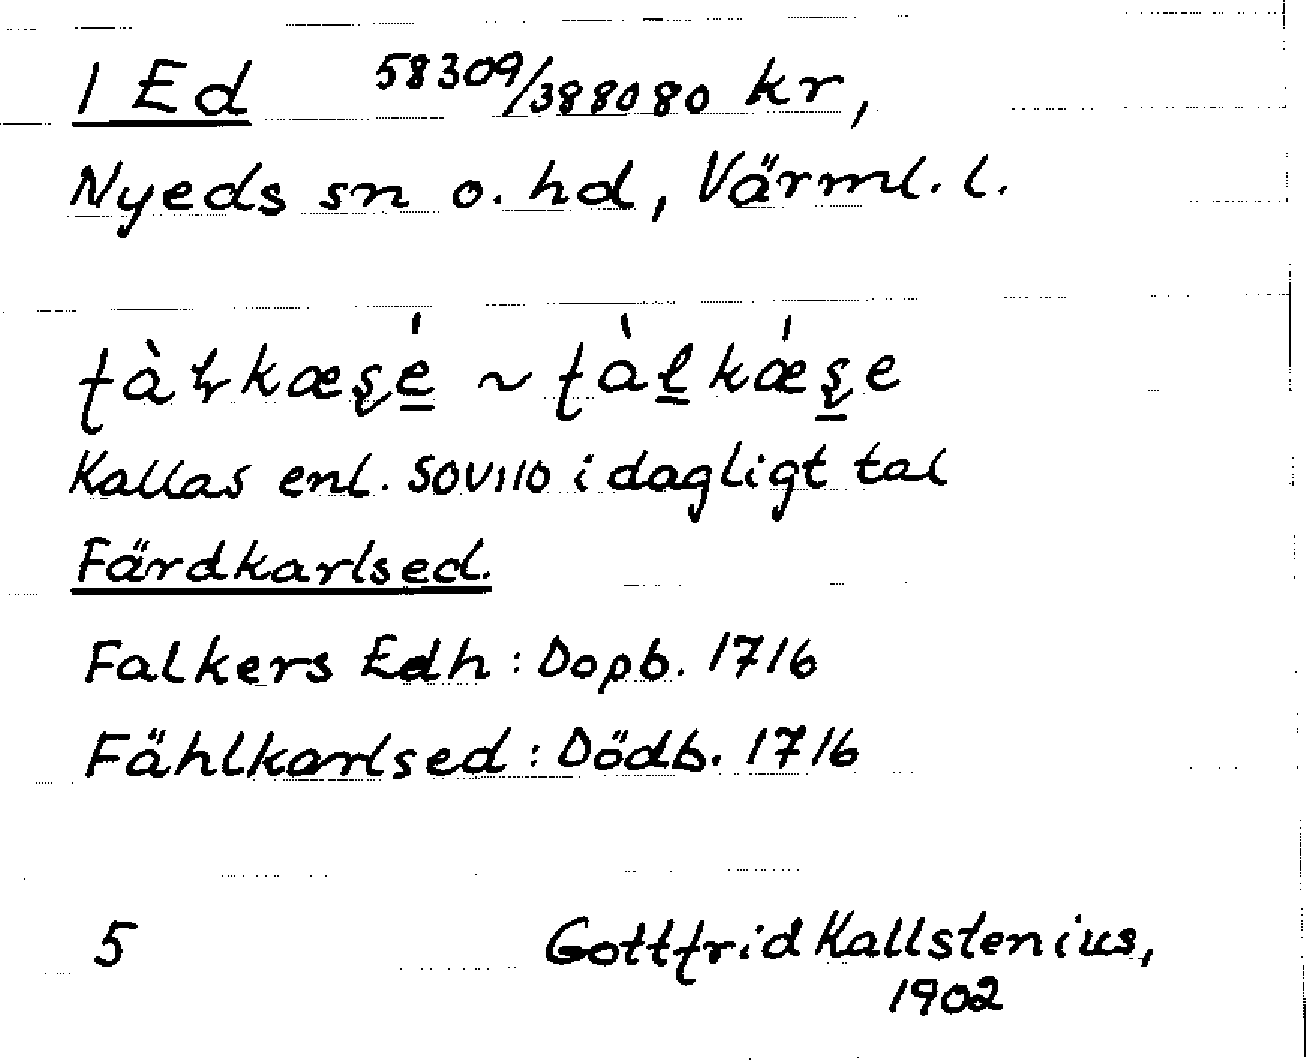 1 Ed 58309/388080 kr,
Nyeds sn o. hd, Värml. l.
Kallas enl. SOV110 i dagligt tal
Färdkarlsed.
Falkers Edh : Dopb. 1716
Fählkarlsed : Dödb. 1716
5 Gottfrid Kallstenius,
1902